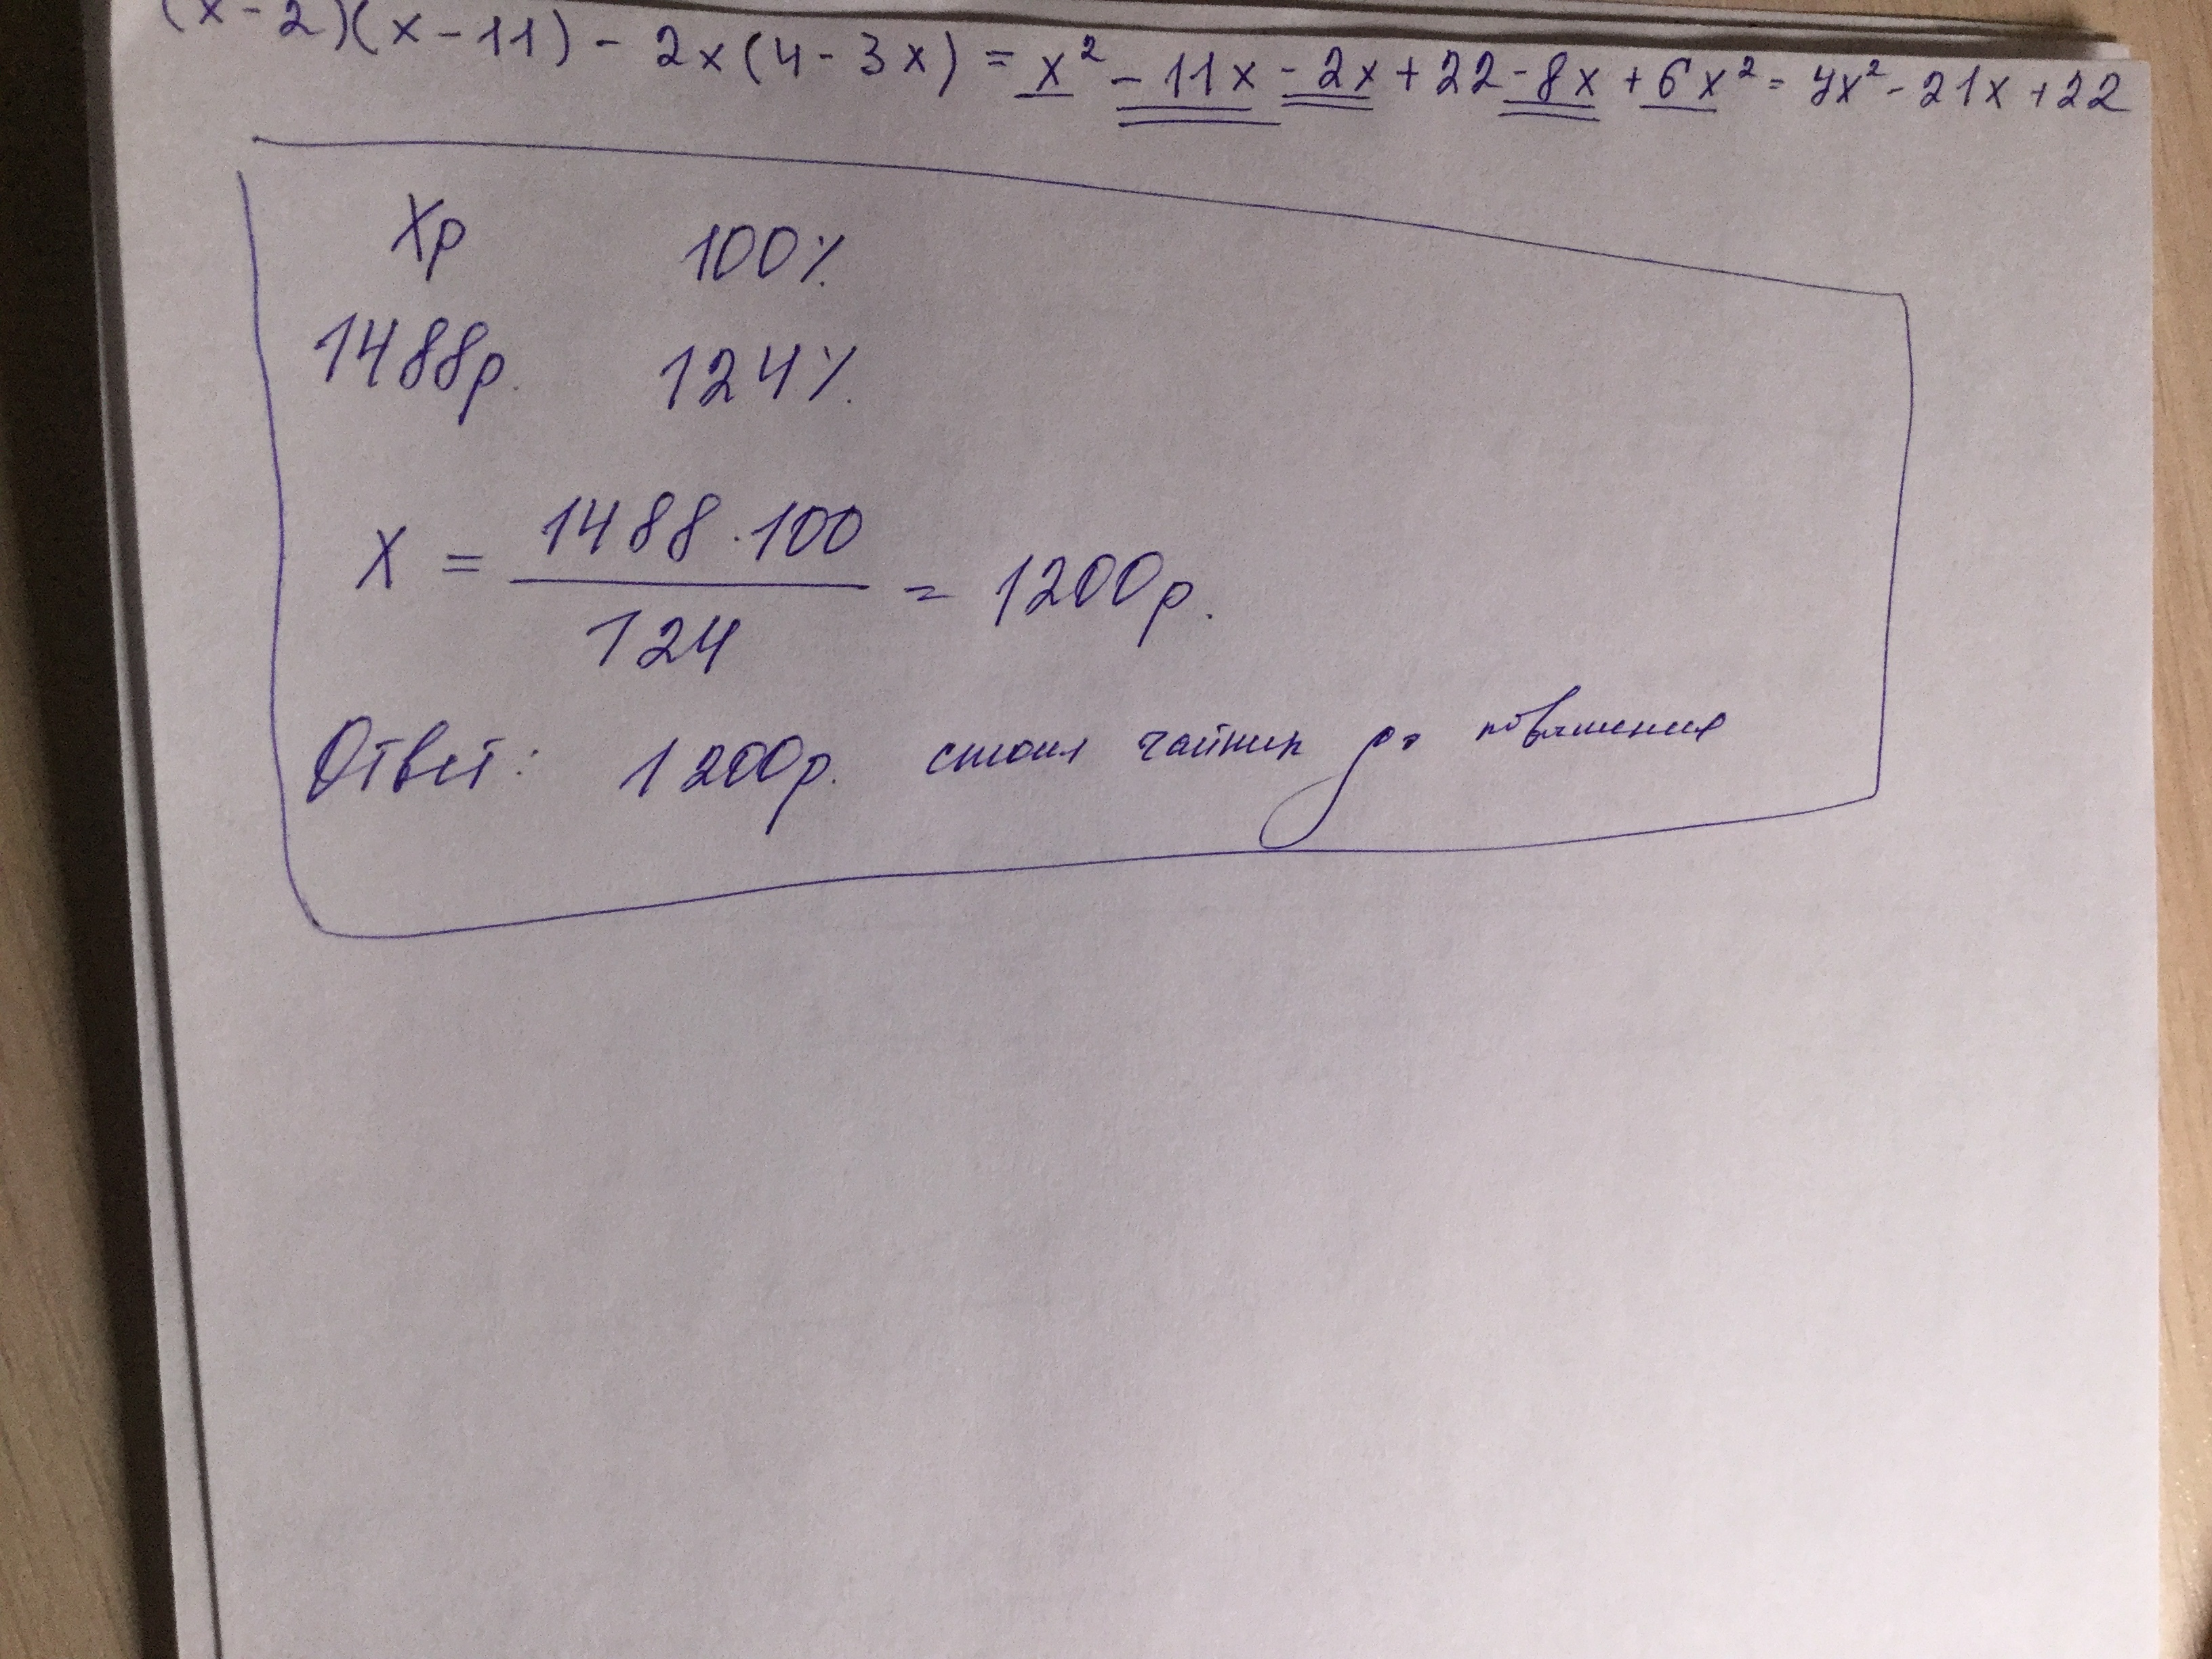 (x-2)(x-11) - 2x(4-3x) = x² - 11x - 2x + 22 - 8x + 6x² = 7x² - 21x + 22
Xр 100%
1488р. 124%
X = 1488·100 / 124 = 1200р.
Ответ: 1200р. стоил чайник до повышения